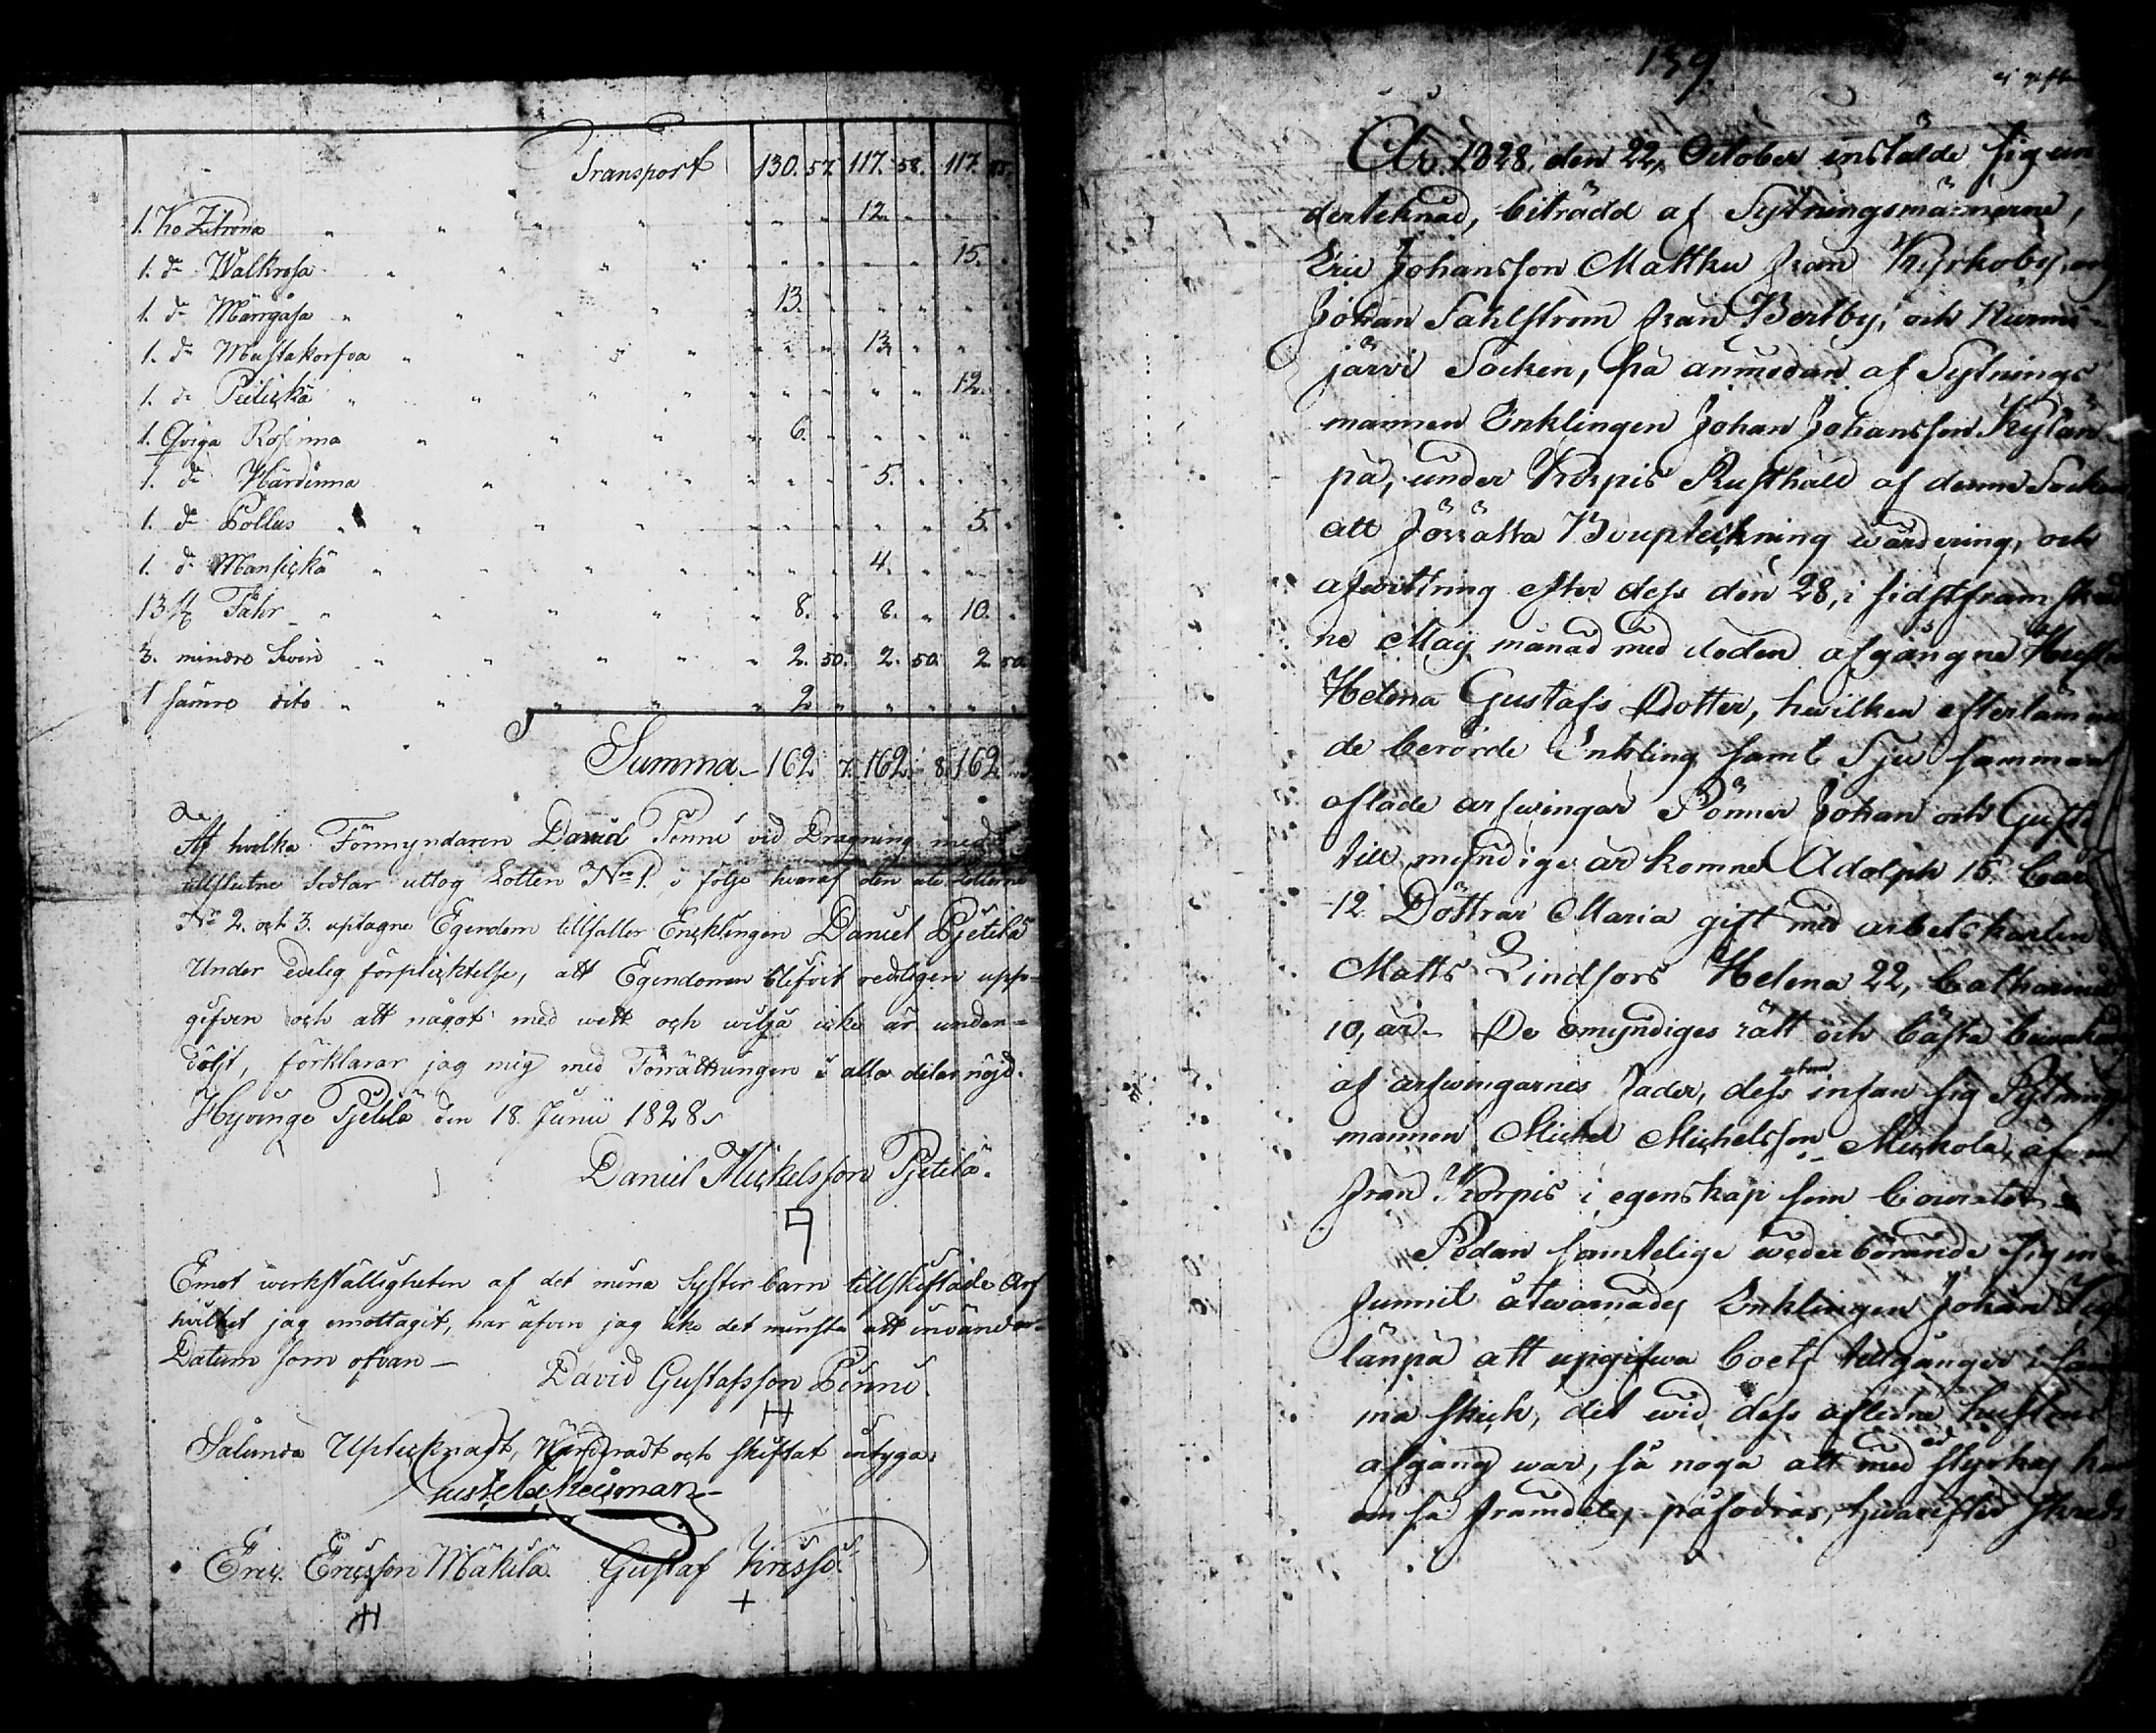 Transport 130. 57. 117. 58. 117. 85.
1. Ko Zitrona " " " " " " 12. " " "
1. do Walkrosa " " " " " " " " 15.
1. do Mansgåsa " " " " 13. " " " "
1. do Mustakorfva " " " " " " 13. " " "
1. do Pieliskä " " " " " " " " 12. "
1. Qviga Rosinna " " " " 6. " " " " "
1. do Wärdinna " " " " " 5. " " "
1. do Pollus " " " " " " " " 5. "
1. do Mansickä " " " " " " 4. " " "
13. st Fåhr " " " " 8. " 8. " 10. "
3. mindre Svin " " " " 2. 50. 2. 50. 2. 50.
1 sämre dito " " " " 2 " " " " "
Summa 162 7. 162. 8. 162
Af hvilka Förmyndaren David Penni vid Dragning med
tillslutne sedlar uttog Lotten No 1. i följe hvaraf den ute Lotterne
No 2. och 3. uptagne Egendom tillfaller Encklingen Daniel Pjetilä
Under Edelig förplicktelse, att Egendomen blifvit redeligen upp-
gifven och att något med wett och wilja icke är unden-
döljt, förklarar jag mig med Förrättningen i alla delar nöjd.
Hyvinge Pjetilä den 18. Junii 1828
Daniel Mickelsson Pjetilä.
Emot werkställigheten af det mina Syster barn tillskiftade Arf
hvilket jag emottagit, har äfven jag icke det minsta att invända
Datum som ofvan —
David Gustafsson Penni.
Sålunda Uptecknadt, Värderadt och skiftat intyga:
Eric Ericsson Mäkilä Gustaf
+
139.
ej gift
År 1828, den 22, October instälde sig un
derteknad, biträdd af Sytningsmännerne,
Eric Johansson Mattku från Kyrkoby, och
Johan Sahlström från Bertby, och Nurmi-
järvi Socken, på anmodan af Sytnings
mannen Enklingen Johan Johansson Kylän-
pä, under Korpis Rusthåll af denne Socken
att förrätta Boupteckning wärdering, och
afwittring efter dess den 28, i sidstframskre
ne Maij månad med döden afgångne Hustru
Helena Gustafs Dotter, hwilken efterlämna
de berörde Enkling samt Sju samman
aflade arfwingar Sönner Johan och Gusta
till myndige år komne Adolph 15 Carl
12 Döttrar Maria gift med arbetskarlen
Matts Lindfors Helena 22, Catharina
10, år. De omyndiges rätt och bästa bewakades
af arfwingarnes fader, dess utom infan sig Sytnings
mannen Michel Michelsson Mickola, äfven
från Korpis i egenskap som Courator
Sedan samtelige wederbörande sig in
funnit åtwarnades Enklingen Johan Ky
länpä att upgifwa boets tillgånger i sam
ma skick, det wid dess aflidne hustrus
afgång war, så noga att med ed styrkas kan
om så framdeles påfodras, hwarefter skreds